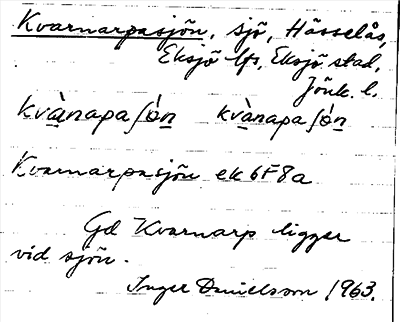 Kvarnarpasjön, sjö, Hässelås,
Eksjö lfs, Eksjö stad,
Jönk. l.
kvànapaʃön kvànapaʃön
Kvarnarpasjön ek 6F8a
Gd Kvarnarp ligger
vid sjön.
Inger Danielsson 1963.